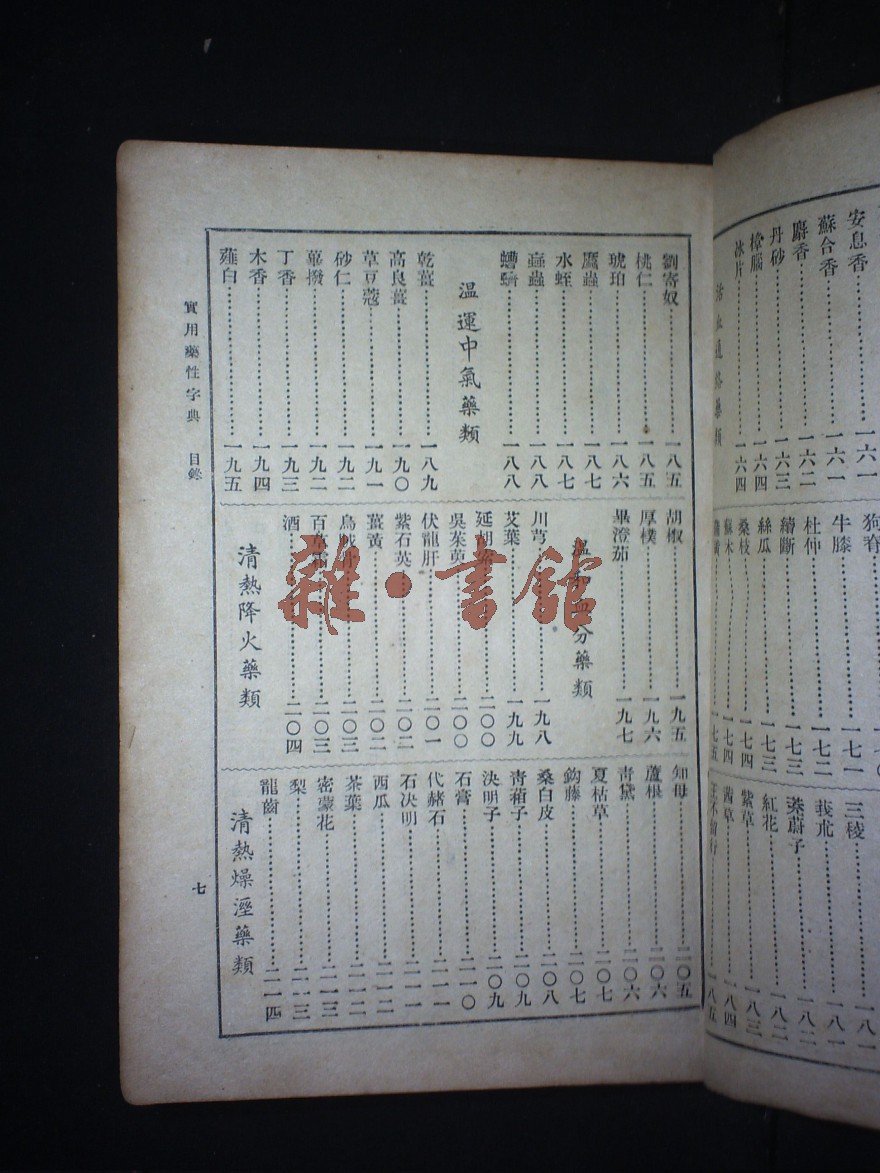 安息香……一六一
蘇合香……一六一
麝香……一六二
丹砂……一六三
樟腦……一六四
冰片……一六四
活血通絡藥類
狗脊
牛膝……一七一
杜仲……一七二
續斷……一七三
絲瓜……一七三
桑枝……一七四
蘇木……一七四
一七五
三稜
莪朮……一八一
茺蔚子……一八二
紅花……一八二
紫草……一八三
茜草……一八四
王不留行……一八五
劉寄奴……一八五
桃仁……一八五
琥珀……一八六
䗪蟲……一八七
水蛭……一八七
蝱蟲……一八八
蠐螬……一八八
溫運中氣藥類
乾薑……一八九
高良薑……一九〇
草豆蔻……一九一
砂仁……一九二
蓽撥……一九二
丁香……一九三
木香……一九四
薤白……一九五
胡椒……一九五
厚樸……一九六
畢澄茄……一九七
溫和血分藥類
川芎……一九八
艾葉……一九九
延胡索……二〇〇
吳茱萸……二〇〇
伏龍肝……二〇一
紫石英……二〇二
薑黃……二〇二
烏賊骨……二〇三
百草霜……二〇三
酒……二〇四
清熱降火藥類
知母……二〇五
蘆根……二〇六
青黛……二〇六
夏枯草……二〇七
鈎藤……二〇七
桑白皮……二〇八
青葙子……二〇九
決明子……二〇九
石膏……二一〇
代赭石……二一一
石決明……二一一
西瓜……二一二
茶葉……二一二
密蒙花……二一三
梨……二一三
龍齒……二一四
清熱燥溼藥類
實用藥性字典 目錄
七
雜·書館